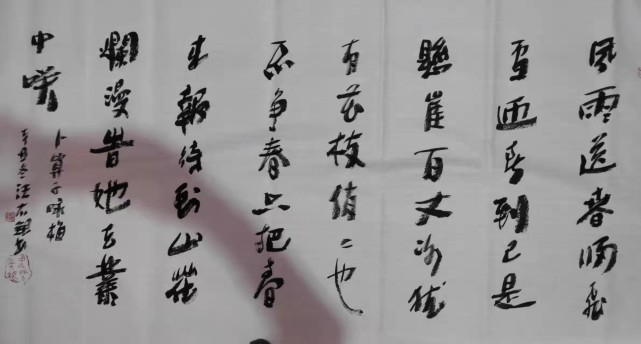 風雨送春归飛
雪迎春到已是
懸崖百丈冰猶
有花枝俏〻也
不争春只把春
来報待到山花
爛漫旹她在叢
中笑
卜算子咏梅
辛丑冬汪